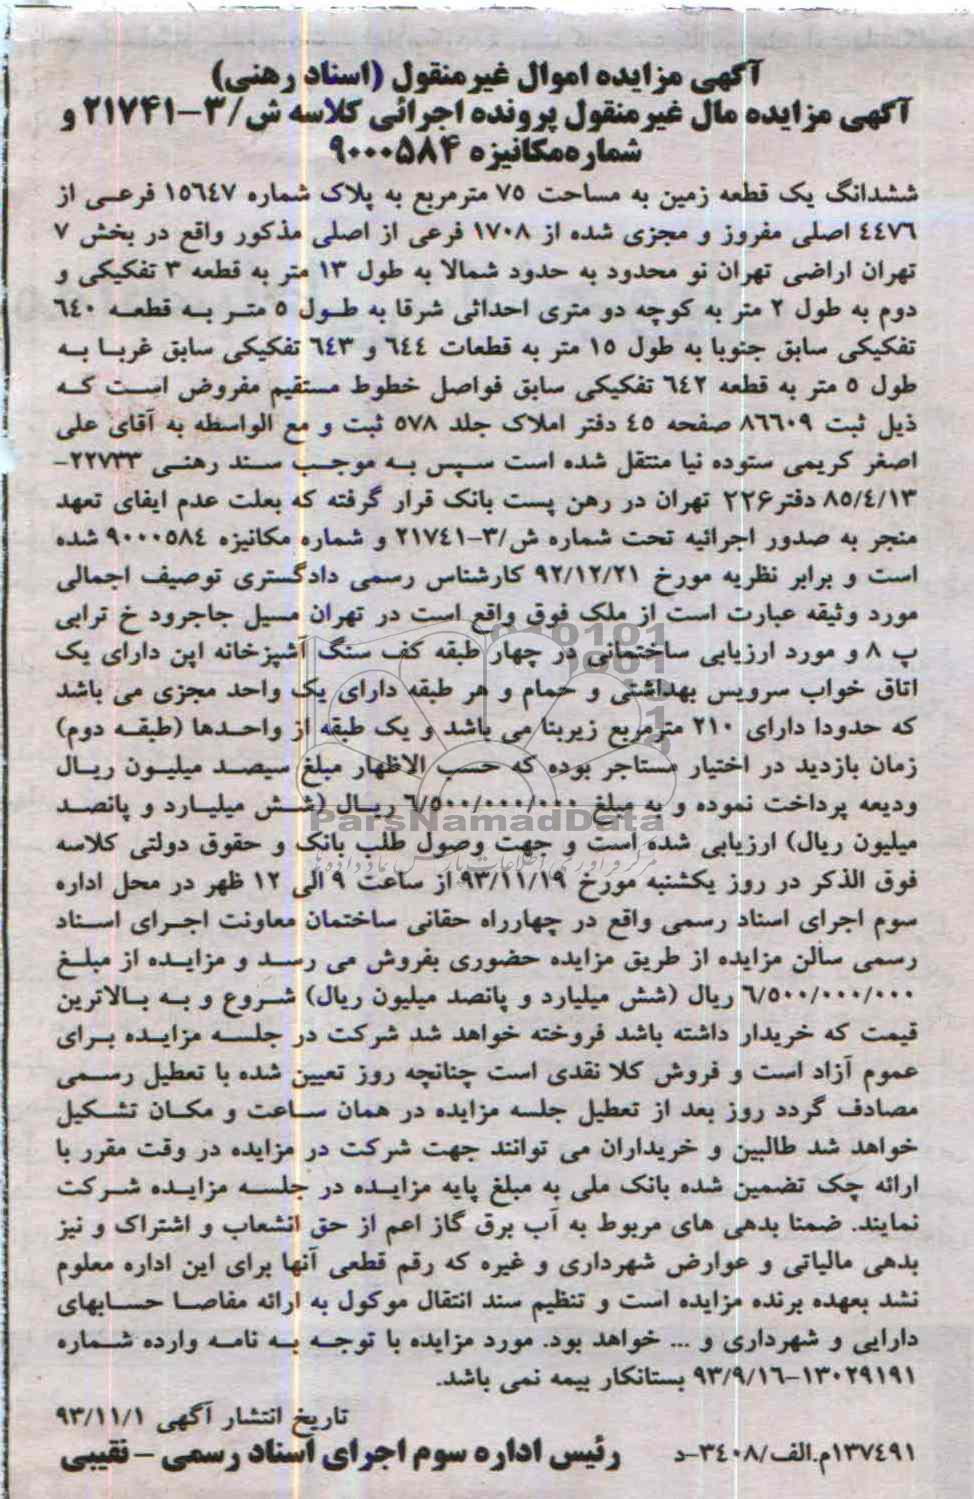 آگهی مزایده اموال غیرمنقول (اسناد رهنی)
آگهی مزایده مال غیرمنقول پرونده اجرائی کلاسه ش/۳-۲۱۷۴۱ و
شماره‌مکانیزه ۹۰۰۰۵۸۴
ششدانگ یک قطعه زمین به مساحت ۷۵ مترمربع به پلاک شماره ۱۵٦٤۷ فرعی از
٤٤۷٦ اصلی مفروز و مجزی شده از ۱۷۰۸ فرعی از اصلی مذکور واقع در بخش ۷
تهران اراضی تهران نو محدود به حدود شمالا به طول ۱۳ متر به قطعه ۳ تفکیکی و
دوم به طول ۲ متر به کوچه دو متری احداثی شرقا به طول ۵ متر به قطعه ٦٤۰
تفکیکی سابق جنوبا به طول ۱۵ متر به قطعات ٦٤٤ و ٦٤۳ تفکیکی سابق غربا به
طول ۵ متر به قطعه ٦٤۲ تفکیکی سابق فواصل خطوط مستقیم مفروض است که
ذیل ثبت ۸٦٦۰۹ صفحه ٤۵ دفتر املاک جلد ۵۷۸ ثبت و مع الواسطه به آقای علی
اصغر کریمی ستوده نیا منتقل شده است سپس به موجب سند رهنی ۲۲۷۳۳-
۸۵/٤/۱۳ دفتر۲۲۶ تهران در رهن پست بانک قرار گرفته که بعلت عدم ایفای تعهد
منجر به صدور اجرائیه تحت شماره ش/۳-۲۱۷٤۱ و شماره مکانیزه ۹۰۰۰۵۸٤ شده
است و برابر نظریه مورخ ۹۲/۱۲/۲۱ کارشناس رسمی دادگستری توصیف اجمالی
مورد وثیقه عبارت است از ملک فوق واقع است در تهران مسیل جاجرود خ ترابی
پ ۸ و مورد ارزیابی ساختمانی در چهار طبقه کف سنگ آشپزخانه اپن دارای یک
اتاق خواب سرویس بهداشتی و حمام و هر طبقه دارای یک واحد مجزی می باشد
که حدودا دارای ۲۱۰ مترمربع زیربنا می باشد و یک طبقه از واحدها (طبقه دوم)
زمان بازدید در اختیار مستاجر بوده که حسب الاظهار مبلغ سیصد میلیون ریال
ودیعه پرداخت نموده و به مبلغ ٦/۵۰۰/۰۰۰/۰۰۰ ریال (شش میلیارد و پانصد
ParsNamadData
میلیون ریال) ارزیابی شده است و جهت وصول طلب بانک و حقوق دولتی کلاسه
فوق الذکر در روز یکشنبه مورخ ۹۳/۱۱/۱۹ از ساعت ۹ الی ۱۲ ظهر در محل اداره
سوم اجرای اسناد رسمی واقع در چهارراه حقانی ساختمان معاونت اجرای اسناد
رسمی سالن مزایده از طریق مزایده حضوری بفروش می رسد و مزایده از مبلغ
٦/۵۰۰/۰۰۰/۰۰۰ ریال (شش میلیارد و پانصد میلیون ریال) شروع و به بالاترین
قیمت که خریدار داشته باشد فروخته خواهد شد شرکت در جلسه مزایده برای
عموم آزاد است و فروش کلا نقدی است چنانچه روز تعیین شده با تعطیل رسمی
مصادف گردد روز بعد از تعطیل جلسه مزایده در همان ساعت و مکان تشکیل
خواهد شد طالبین و خریداران می توانند جهت شرکت در مزایده در وقت مقرر با
ارائه چک تضمین شده بانک ملی به مبلغ پایه مزایده در جلسه مزایده شرکت
نمایند. ضمنا بدهی های مربوط به آب برق گاز اعم از حق انشعاب و اشتراک و نیز
بدهی مالیاتی و عوارض شهرداری و غیره که رقم قطعی آنها برای این اداره معلوم
نشد بعهده برنده مزایده است و تنظیم سند انتقال موکول به ارائه مفاصا حسابهای
دارایی و شهرداری و ... خواهد بود. مورد مزایده با توجه به نامه وارده شماره
۱۳۰۲۹۱۹۱-۹۳/۹/۱٦ بستانکار بیمه نمی باشد.
تاریخ انتشار آگهی ۹۳/۱۱/۱
۱۳۷٤۹۱م.الف/۳٤۰۸-د رئیس اداره سوم اجرای اسناد رسمی - نقیبی